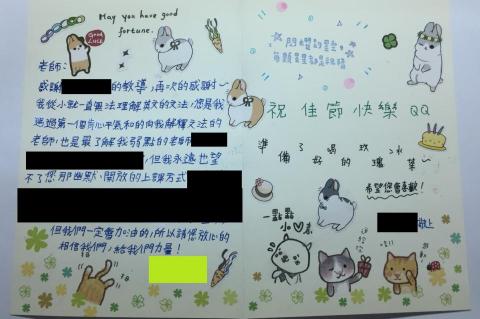 May you have good
fortune.
Good
Luck
老師：
感謝的教導，再次的感謝～
我從小就一直無法理解英文的文法，您是我
遇過第一個肯心平氣和的向我解釋文法的
老師，也是最了解我弱點的老師
，但我永遠也忘
不了您那幽默、開放的上課方式
但我們一定會加油的，所以請您放心的
相信我們，給我們力量！
閃耀的星空，
每顆星都是祝福
祝佳節快樂 QQ
準備了好喝的玫瑰冰茶～
希望您會喜歡！
敬上
一點點
小心意
送給你